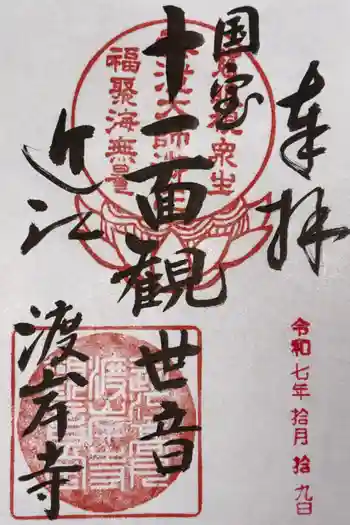 奉拝
国宝
十一面観世音
近江
渡岸寺
令和七年拾月拾九日
衆生
福聚海無量